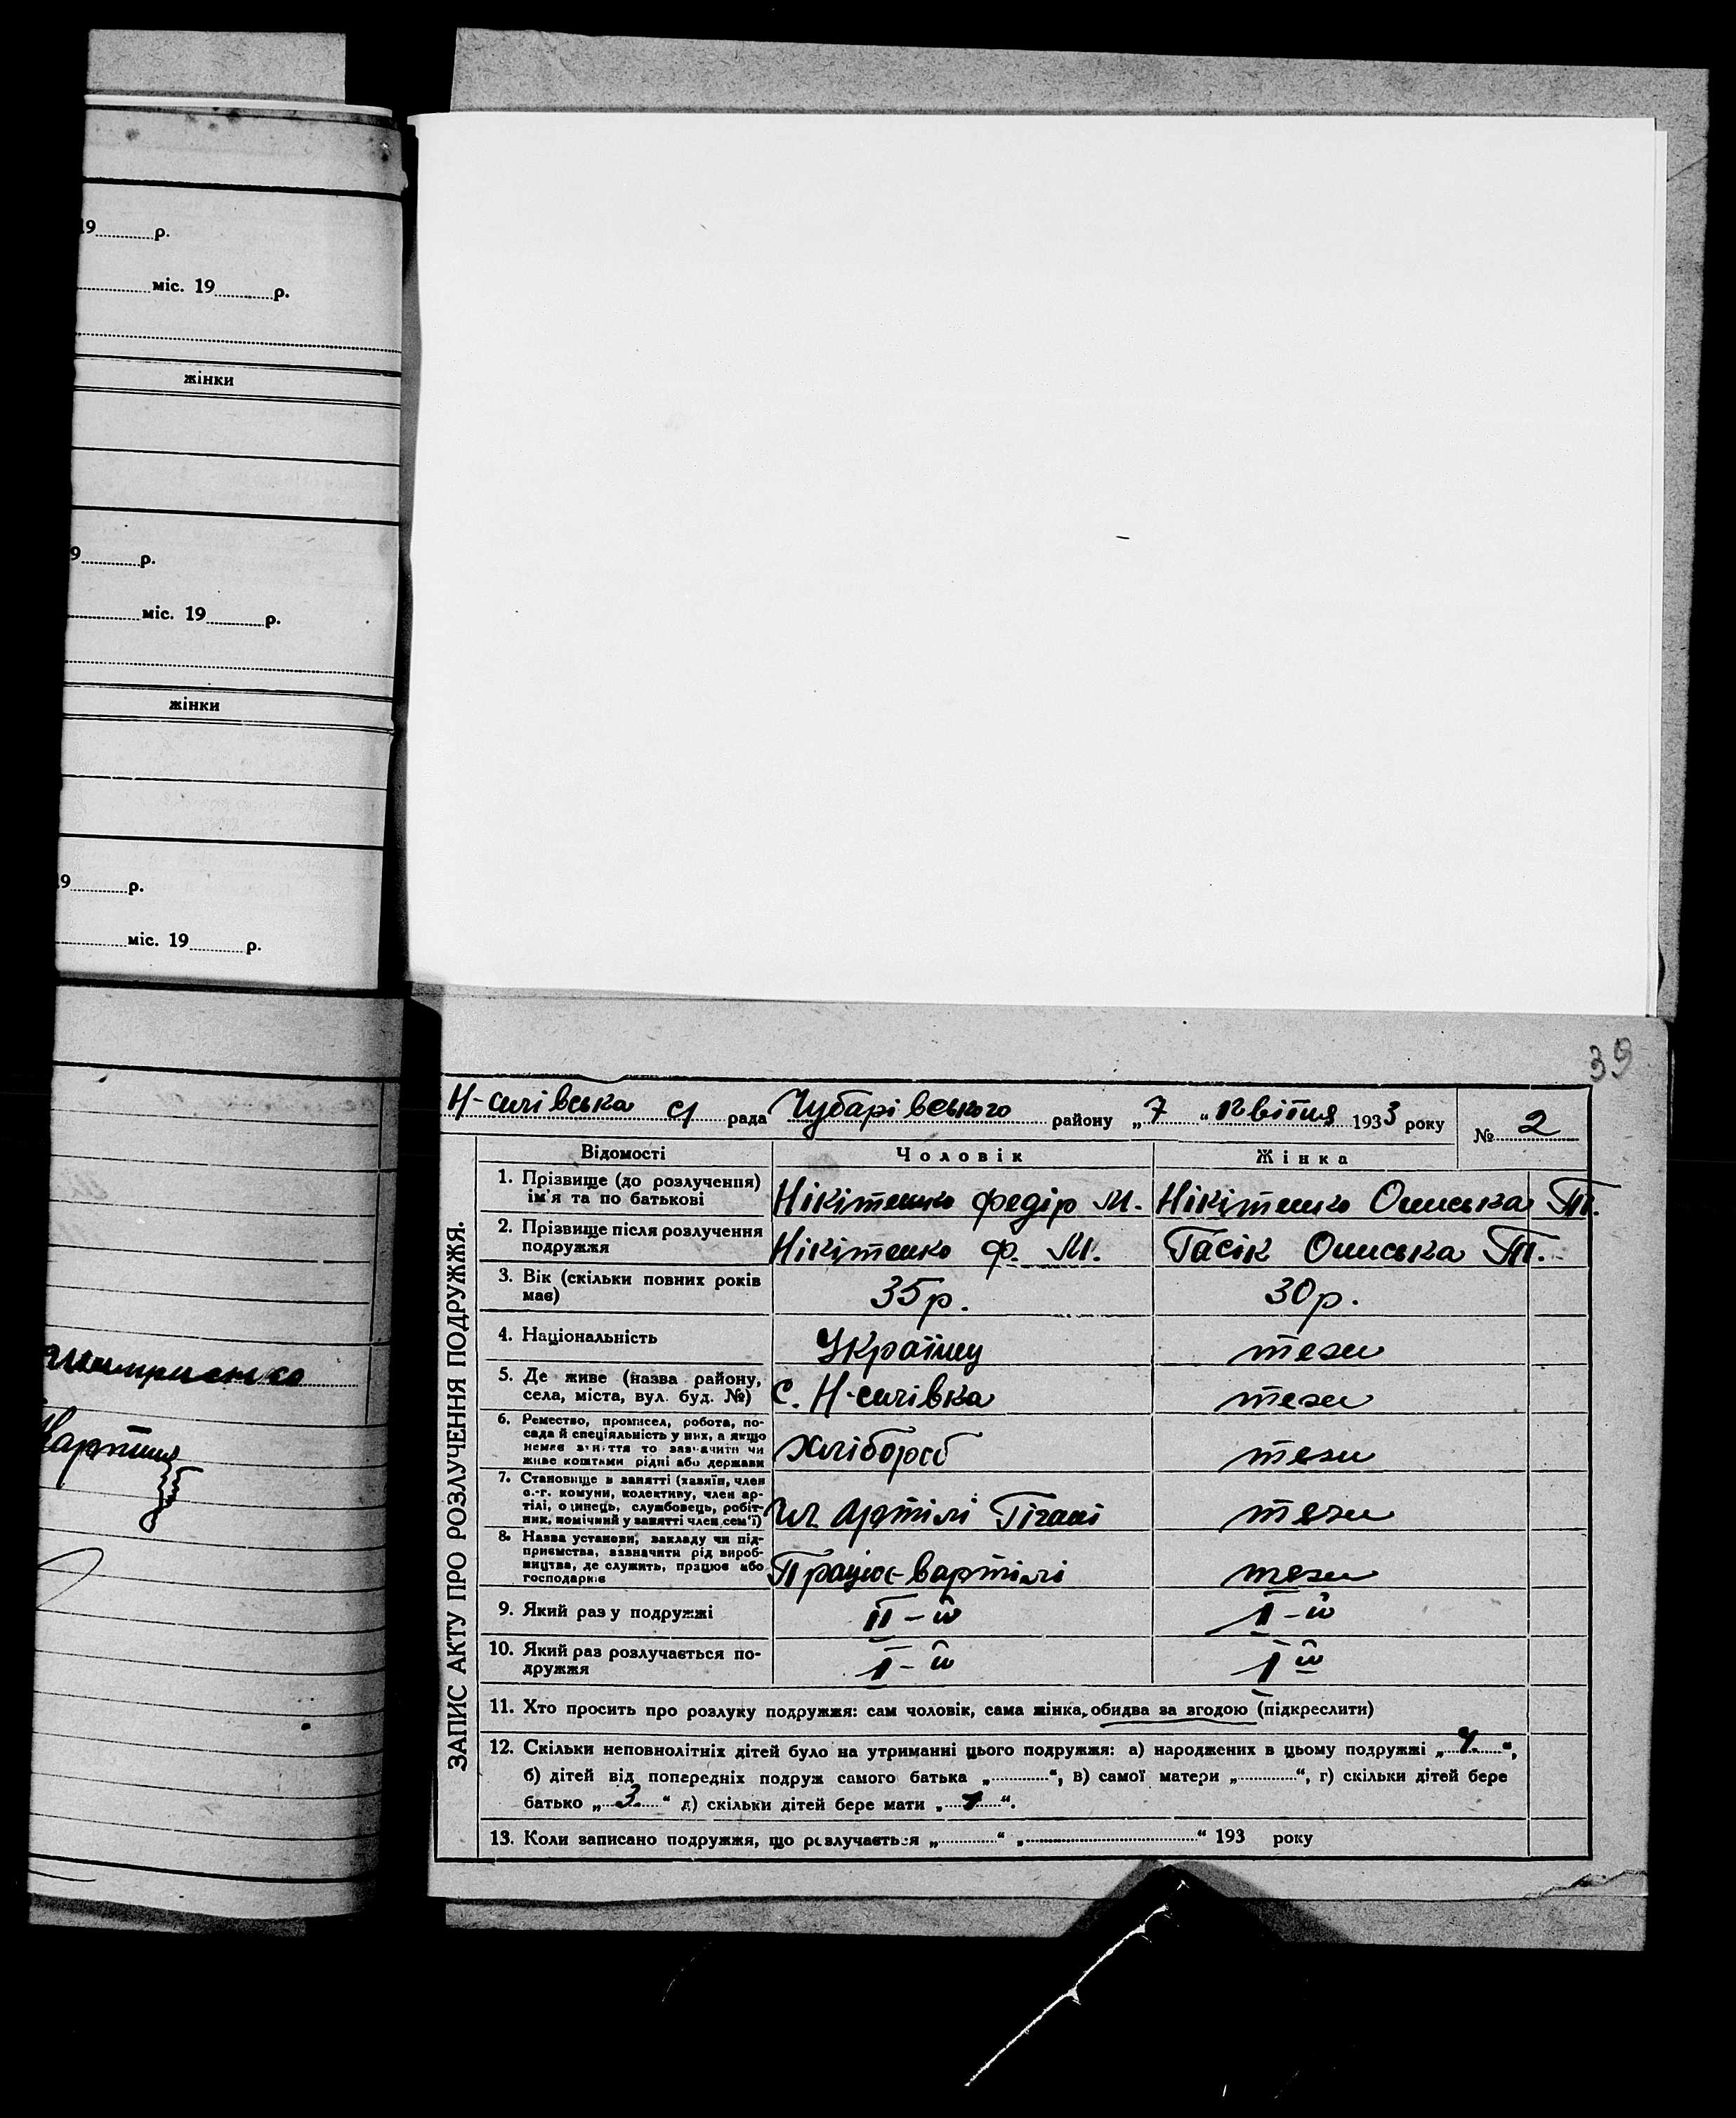 19 р.
міс. 19 р.
жінки
9 р.
міс. 19 р.
жінки
19 р.
міс. 19 р.
39
рада Чубарівського району „7“ квітня 1933 року № 2
ЗАПИС АКТУ ПРО РОЗЛУЧЕННЯ ПОДРУЖЖЯ.
Відомості Чоловік Жінка
1. Прізвище (до розлучення) ім'я та по батькові Нікітенко Федір М. Нікітенко Ониська Т.
2. Прізвище після розлучення подружжя Нікітенко Ф. М. Гасік Ониська Т.
3. Вік (скільки повних років має) 35 р. 30 р.
4. Національність Українц теж
5. Де живе (назва району, села, міста, вул. буд. №) с. теж
6. Ремество, промисел, робота, посада й спеціяльність у них, а якщо немає заняття то зазначити чи живе коштами рідні або держави Хлібороб теж
7. Становище в занятті (хазяїн, член с.-г. комуни, колективу, член артілі, одинець, службовець, робітник, помічний у занятті член сем'ї) чл. Артілі Гігант теж
8. Назва установи, закладу чи підприємства, зазначити рід виробництва, де служить, працює або господарює Працює в артілі теж
9. Який раз у подружжі II-й I-й
10. Який раз розлучається подружжя I-й I й
11. Хто просить про розлуку подружжя: сам чоловік, сама жінка, обидва за згодою (підкреслити)
12. Скільки неповнолітніх дітей було на утриманні цього подружжя: а) народжених в цьому подружжі „4“,
б) дітей від попередніх подруж самого батька „ “, в) самої матери „ “, г) скільки дітей бере
батько „3“ д) скільки дітей бере мати „1“.
13. Коли записано подружжя, що розлучається „ “ „ “ 193 року